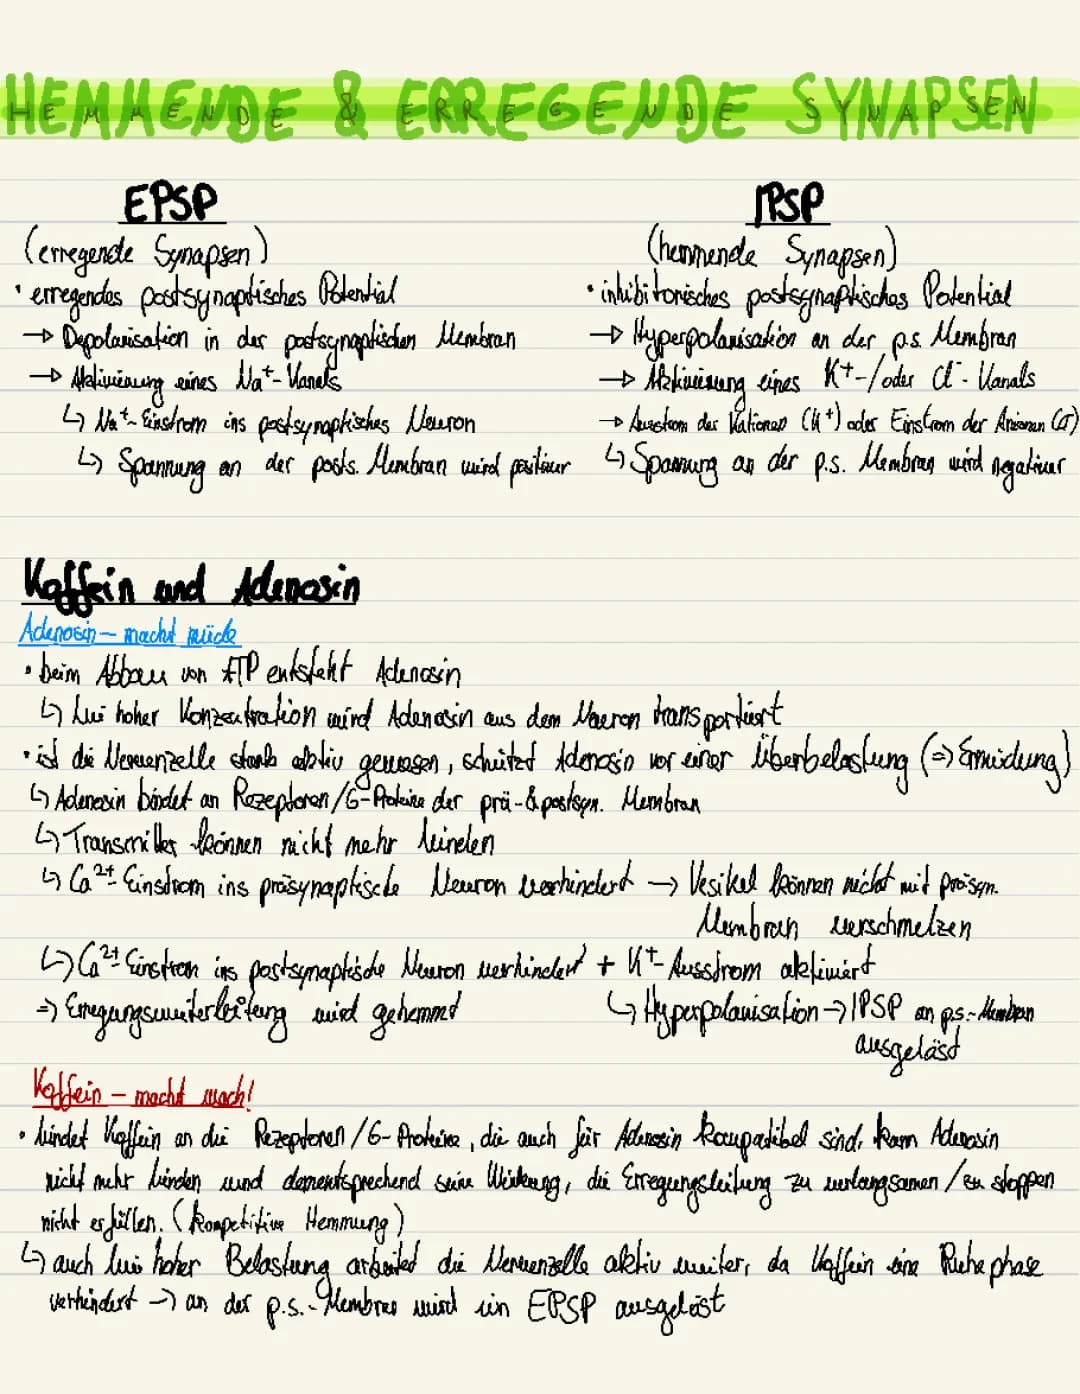 HEMMENDE & ERREGENDE SYNAPSEN
EPSP
(erregende Synapsen)
• erregendes postsynaptisches Potential
→ Depolarisation in der postsynaptischen Membran
→ Aktivierung eines Na⁺-Kanals
↳ Na⁺-Einstrom ins postsynaptisches Neuron
↳ Spannung an der posts. Membran wird positiver
IPSP
(hemmende Synapsen)
• inhibitorisches postsynaptisches Potential
→ Hyperpolarisation an der p.s. Membran
→ Aktivierung eines K⁺-/oder Cl⁻-Kanals
→ Ausstrom der Kationen (K⁺) oder Einstrom der Anionen (Cl⁻)
↳ Spannung an der p.s. Membran wird negativer
Koffein und Adenosin
Adenosin – macht müde
• beim Abbau von ATP entsteht Adenosin
↳ bei hoher Konzentration wird Adenosin aus dem Neuron transportiert
• ist die Nervenzelle stark aktiv gewesen, schützt Adenosin vor einer Überbelastung (⇒ Ermüdung)
↳ Adenosin bindet an Rezeptoren/G-Proteine der prä-&postsyn. Membran
↳ Transmitter können nicht mehr binden
↳ Ca²⁺-Einstrom ins präsynaptische Neuron verhindert → Vesikel können nicht mit präsyn.
Membran verschmelzen
↳ Ca²⁺-Einstrom ins postsynaptische Neuron verhindert + K⁺-Ausstrom aktiviert
⇒ Erregungsweiterleitung wird gehemmt
↳ Hyperpolarisation → IPSP an ps.-Membran
ausgelöst
Koffein – macht wach!
• bindet Koffein an die Rezeptoren/G-Proteine, die auch für Adenosin kompatibel sind, kann Adenosin
nicht mehr binden und dementsprechend seine Wirkung, die Erregungsleitung zu verlangsamen/zu stoppen
nicht erfüllen. (kompetitive Hemmung)
↳ auch bei hoher Belastung arbeitet die Nervenzelle aktiv weiter, da Koffein eine Ruhephase
verhindert → an der p.s.-Membran wird ein EPSP ausgelöst